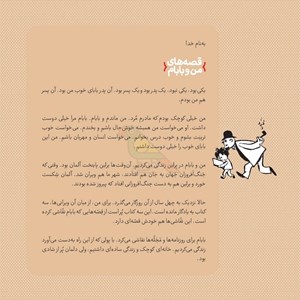 به‌نام خدا
قصه‌های
من و بابام
یکی بود. یکی نبود. یک پدر بود و یک پسر بود. آن پدر بابای خوب من بود. آن پسر
هم من بودم.
من خیلی کوچک بودم که مادرم مُرد. من ماندم و بابام. بابام مرا خیلی دوست
داشت. او می‌خواست من همیشه خوش‌حال باشم و بخندم. می‌خواست خوب
تربیت بشوم و خوب درس بخوانم. می‌خواست انسان و مهربان باشم. من این
بابای خوب را خیلی دوست داشتم.
من و بابام در برلین زندگی می‌کردیم. آن‌وقت‌ها برلین پایتخت آلمان بود. وقتی که
جنگ‌افروزان جهان به جان هم افتادند. شهر ما هم ویران شد. آلمان شکست
خورد و برلین هم به دست جنگ‌افرازانی افتاد که پیروز شده بودند.
حالا نزدیک به چهل سال از آن روزگار می‌گذرد. برای من، از میان آن ویرانی‌ها، سه
کتاب به یادگار مانده است. این سه کتاب پُر از قصه‌هایی که بابام نقاشی کرده
است. این نقاشی‌ها هم خودش قصه‌ای دارد.
بابام برای روزنامه‌ها و مجله‌ها نقاشی می‌کرد. با پولی که از این راه به‌دست می‌آورد
زندگی می‌کردیم. خانه‌ای کوچک و زندگی ساده‌ای داشتیم. ولی دلمان پُر از شادی
بود.